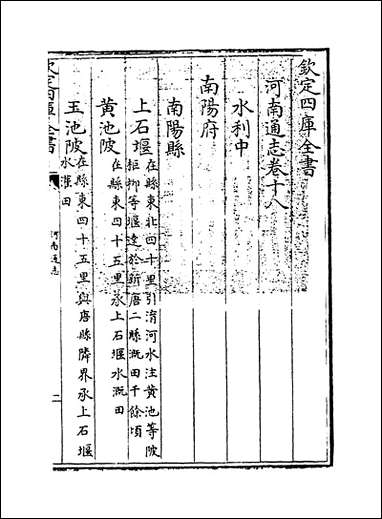 欽定四庫全書
河南通志卷十八
水利中
南陽府
南陽縣
上石堰在縣東北四十里引淯河水注黄池等陂
柜柳等堰達於新唐二縣溉田千餘頃
黄池陂在縣東四十五里承上石堰水溉田
玉池陂在縣東四十五里與唐縣隣界承上石堰
水灌田
欽定四庫全書
河南通志